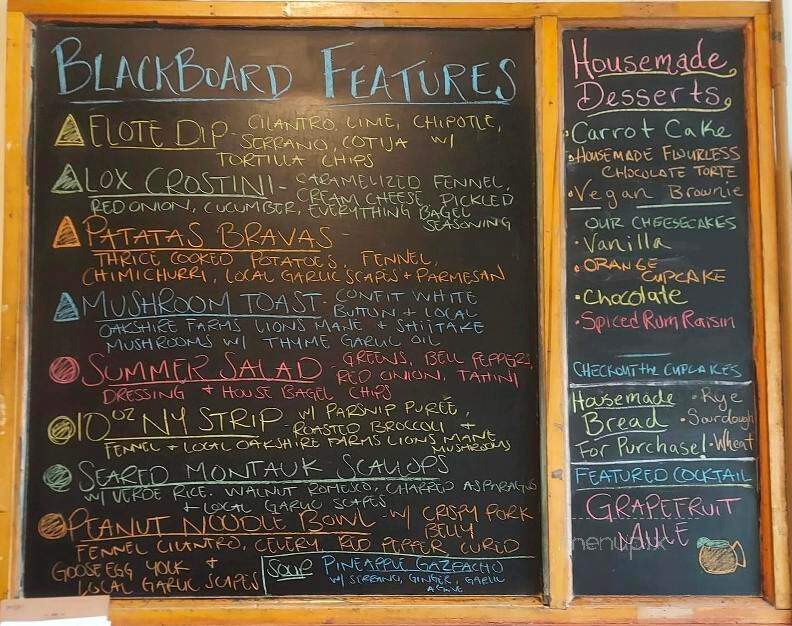 BLACKBOARD FEATURES
ELOTE DIP - CILANTRO, LIME, CHIPOTLE,
SERRANO, COTIJA W/
TORTILLA CHIPS
LOX CROSTINI - CARAMELIZED FENNEL,
CREAM CHEESE, PICKLED
RED ONION, CUCUMBER, EVERYTHING BAGEL
SEASONING
PATATAS BRAVAS -
THRICE COOKED POTATOES, FENNEL,
CHIMICHURRI, LOCAL GARLIC SCAPES + PARMESAN
MUSHROOM TOAST - CONFIT WHITE
BUTTON + LOCAL
OAKSHIRE FARMS LIONS MANE + SHIITAKE
MUSHROOMS W/ THYME GARLIC OIL
SUMMER SALAD - GREENS, BELL PEPPERS,
RED ONION, TAHINI
DRESSING + HOUSE BAGEL CHIPS
10 OZ NY STRIP W/ PARSNIP PURÉE,
ROASTED BROCCOLI +
FENNEL + LOCAL OAKSHIRE FARMS LIONS MANE
MUSHROOMS
SEARED MONTAUK SCALLOPS
W/ VERDE RICE, WALNUT ROMESCO, CHARRED ASPARAGUS
+ LOCAL GARLIC SCAPES
PEANUT NOODLE BOWL W/ CRISPY PORK
BELLY
FENNEL CILANTRO, CELERY RED PEPPER CURED
GOOSE EGG YOLK +
LOCAL GARLIC SCAPES
SOUP PINEAPPLE GAZPACHO
W/ SERRANO, GINGER, GARLIC
Housemade
Desserts
• Carrot Cake
• HOUSEMADE FLOURLESS
CHOCOLATE TORTE
• Vegan Brownie
OUR CHEESECAKES
• Vanilla
• ORANGE
CUPCAKE
• Chocolate
• Spiced Rum Raisin
CHECKOUT the CUPCAKES
Housemade
Bread
For Purchase!
• Rye
• Sourdough
• Wheat
FEATURED COCKTAIL
GRAPEFRUIT
MULE
menupix